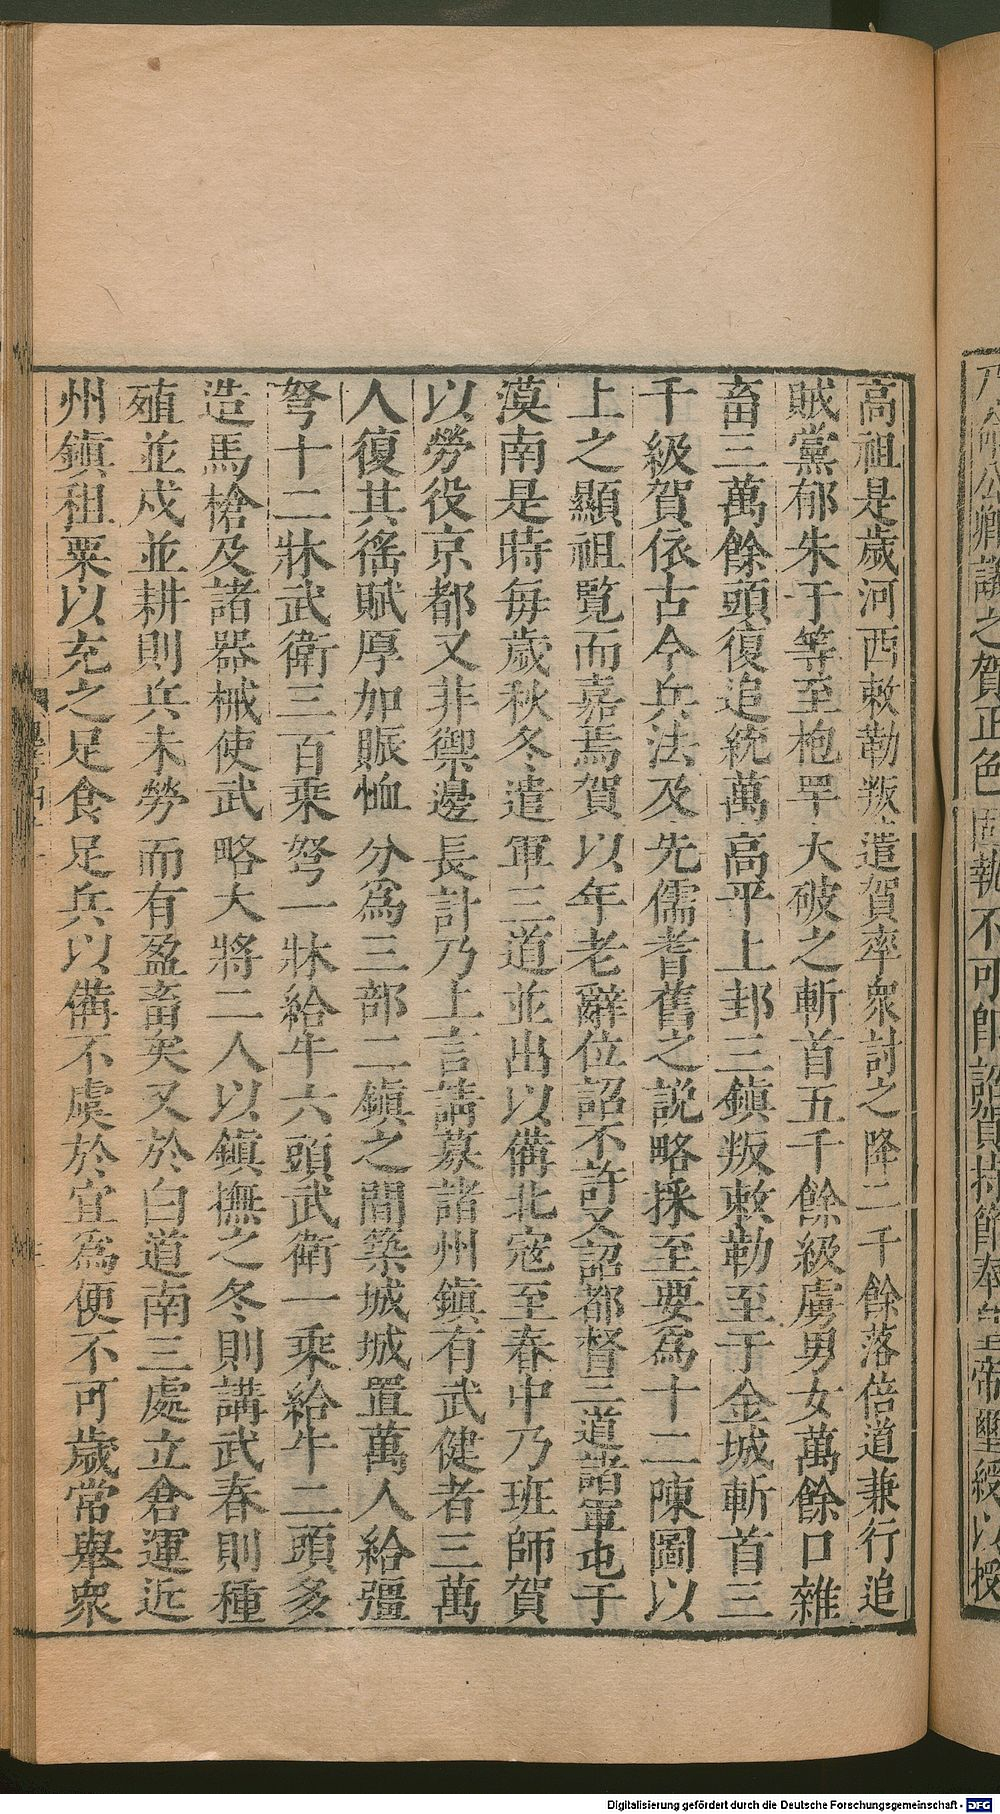 乃命公卿議之賀正色固執不可即詔賀持節奉皇帝璽綬以授
高祖是歲河西敕勒叛遣賀率衆討之降二千餘落倍道兼行追
賊黨郁朱于等至枹罕大破之斬首五千餘級虜男女萬餘口雜
畜三萬餘頭復追統萬高平上邽三鎮叛敕勒至于金城斬首三
千級賀依古今兵法及先儒耆舊之說略採至要爲十二陳圖以
上之顯祖覽而嘉焉賀以年老辭位詔不許又詔都督三道諸軍屯于
漠南是時每歲秋冬遣軍三道並出以備北寇至春中乃班師賀
以勞役京都又非禦邊長計乃上言請募諸州鎮有武健者三萬
人復其徭賦厚加賑恤分爲三部二鎮之間築城城置萬人給彊
弩十二牀武衛三百乘弩一牀給牛六頭武衛一乘給牛二頭多
造馬槍及諸器械使武略大將二人以鎮撫之冬則講武春則種
殖並戍並耕則兵未勞而有盈畜矣又於白道南三處立倉運近
州鎮租粟以充之足食足兵以備不虞於宜爲便不可歲常舉衆
Digitalisierung gefördert durch die Deutsche Forschungsgemeinschaft - DFG